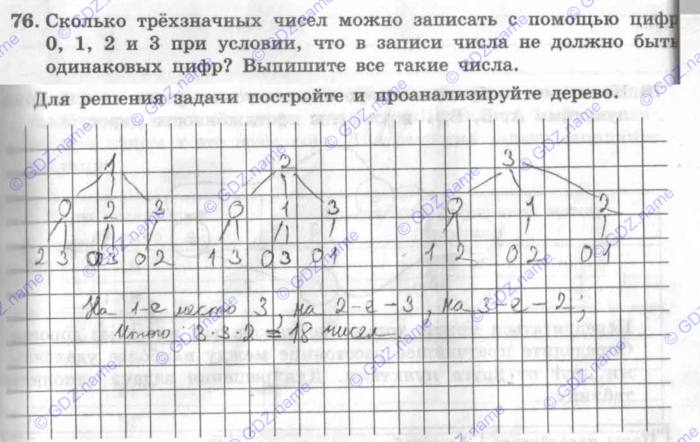 76. Сколько трёхзначных чисел можно записать с помощью цифр
0, 1, 2 и 3 при условии, что в записи числа не должно быть
одинаковых цифр? Выпишите все такие числа.
Для решения задачи постройте и проанализируйте дерево.
1 2 3
0 2 3 0 1 3 0 1 2
2 3 0 3 0 2 1 3 0 3 0 1 1 2 0 2 0 1
На 1-е место 3, на 2-е - 3, на 3-е - 2;
Итого 3·3·2 = 18 чисел
© GDZ.name